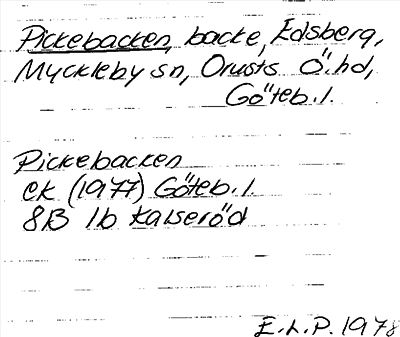 Pickebacken, backe, Edsberg,
Myckleby sn, Orusts Ö. hd,
Göteb. l.
Pickebacken
ek (1977) Göteb. l.
8B 1b Kalseröd
E.L.P. 1978